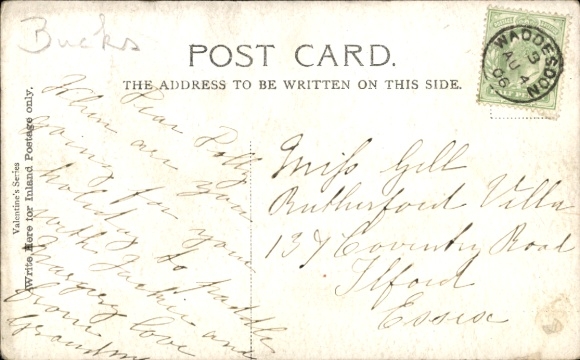 Bucks
POST CARD.
THE ADDRESS TO BE WRITTEN ON THIS SIDE.
WADDESDON
3
AU 4
06
Valentine's Series
Write Here for Inland Postage only.
Dear Polly
When are you
going for your
holiday to paddle
with Jackie and
love
from
Grandma
Miss Gell
Rutherford Villa
137 Coventry Road
Ilford
Essex